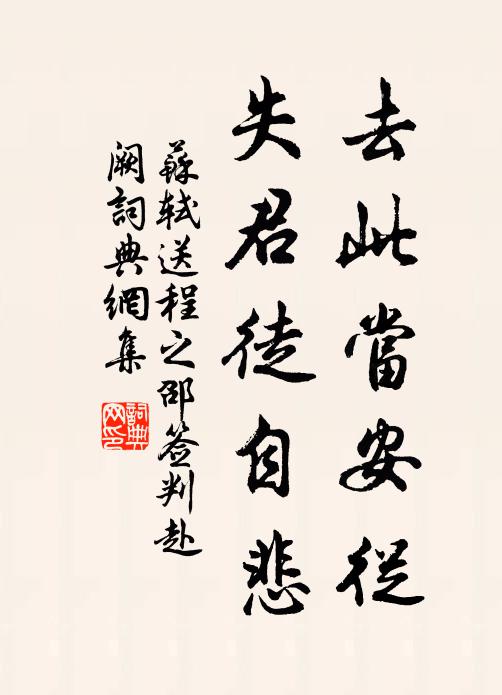 去此當安從
失君徒自悲
蘇軾送程之邵签判赴
闕詞典網集
詞典
网印